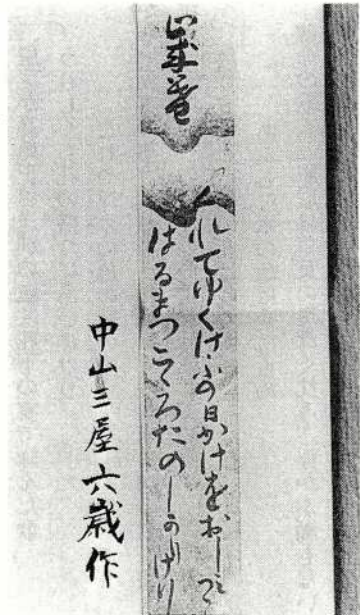 歳暮
くれてゆくけふの日かけをおしミつゝ
はるまつこゝろたのしかりけり
中山三屋 六歳作